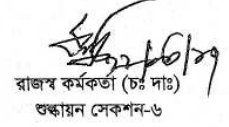 রাজস্ব কর্মকর্তা (চঃ দাঃ)
শুল্কায়ন সেকশন-৬